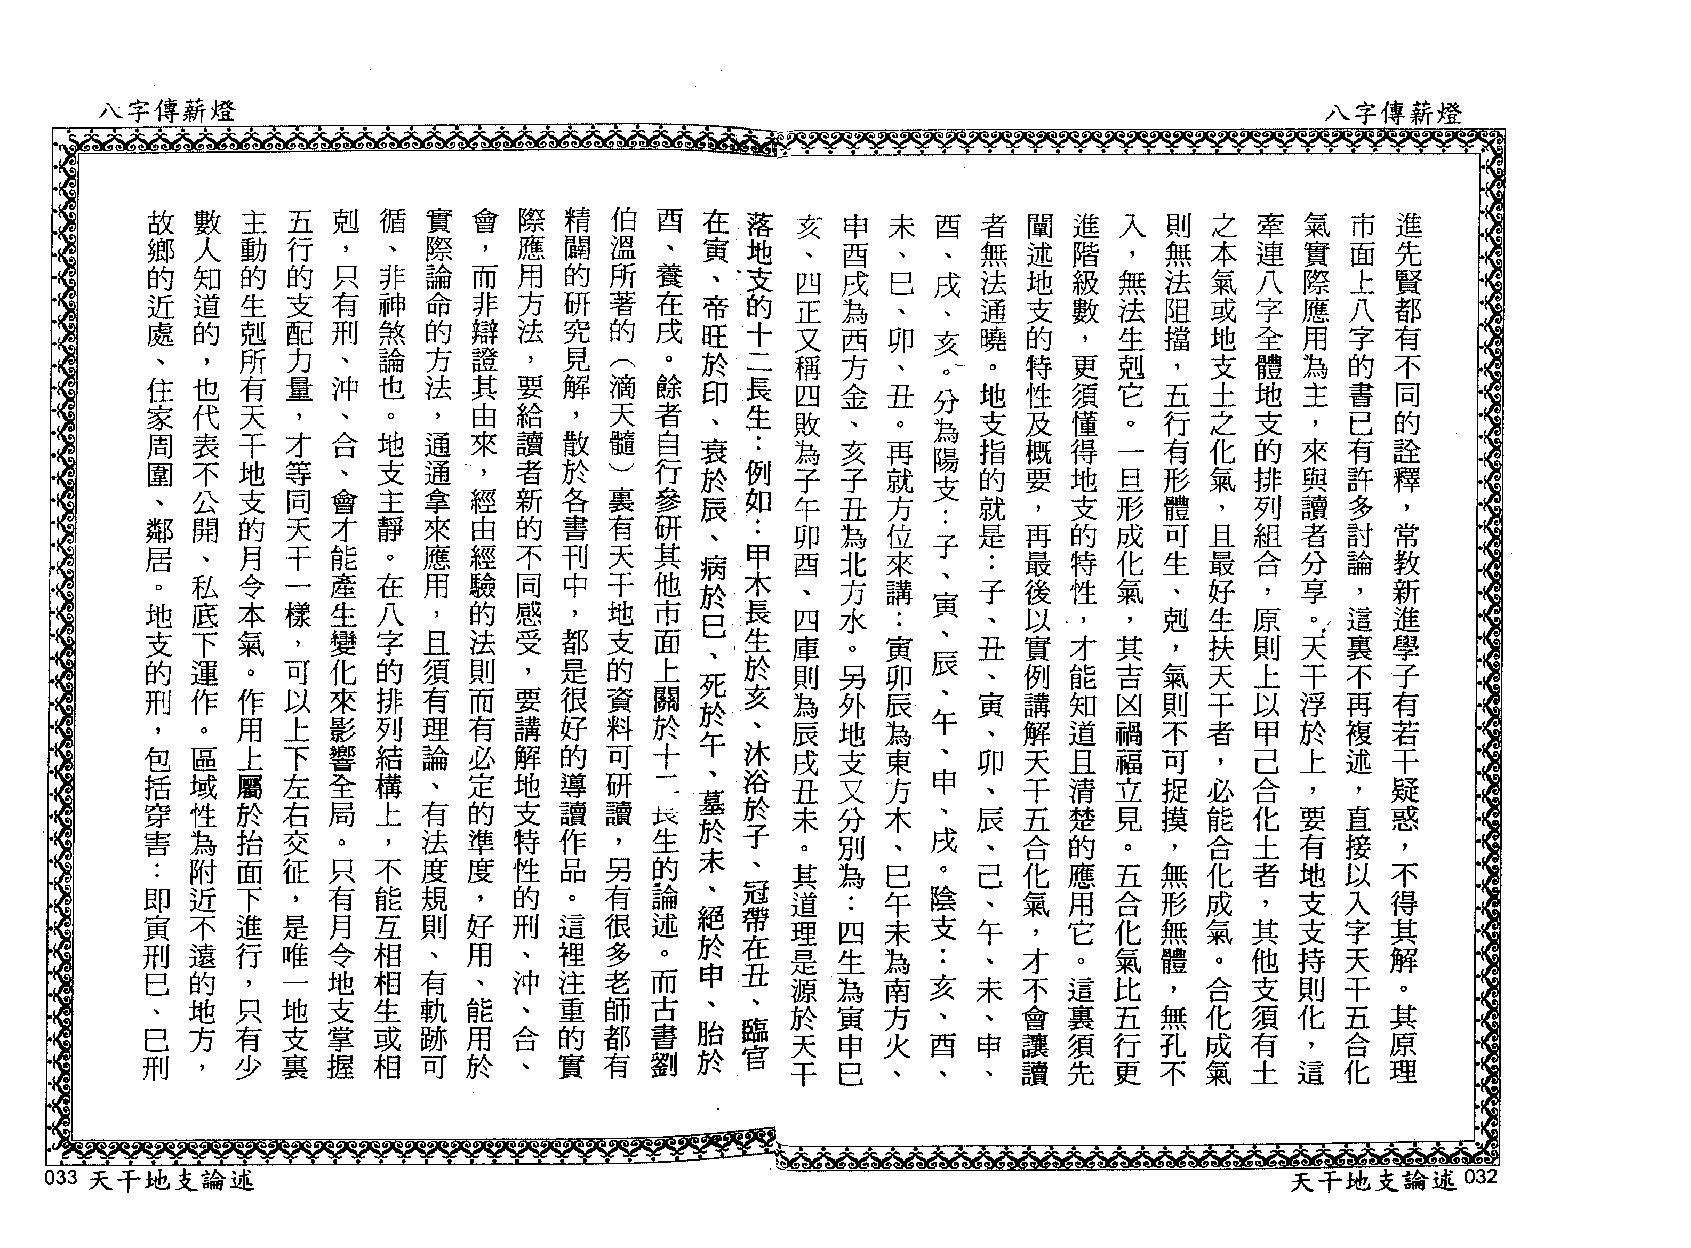 八字傳薪燈
進先賢都有不同的詮釋，常教新進學子有若干疑惑，不得其解。其原理
市面上八字的書已有許多討論，這裏不再複述，直接以入字天干五合化
氣實際應用為主，來與讀者分享。天干浮於上，要有地支支持則化，這
牽連八字全體地支的排列組合，原則上以甲己合化土者，其他支須有土
之本氣或地支土之化氣，且最好生扶天干者，必能合化成氣。合化成氣
則無法阻擋，五行有形體可生、剋，氣則不可捉摸，無形無體，無孔不
入，無法生剋它。一旦形成化氣，其吉凶禍福立見。五合化氣比五行更
進階級數，更須懂得地支的特性，才能知道且清楚的應用它。這裏須先
闡述地支的特性及概要，再最後以實例講解天干五合化氣，才不會讓讀
者無法通曉。地支指的就是：子、丑、寅、卯、辰、己、午、未、申、
酉、戌、亥。分為陽支：子、寅、辰、午、申、戌。陰支：亥、酉、
未、巳、卯、丑。再就方位來講：寅卯辰為東方木、巳午未為南方火、
申酉戌為西方金、亥子丑為北方水。另外地支又分別為：四生為寅申巳
亥、四正又稱四敗為子午卯酉、四庫則為辰戌丑未。其道理是源於天干
天干地支論述 032
八字傳薪燈
落地支的十二長生：例如：甲木長生於亥、沐浴於子、冠帶在丑、臨官
在寅、帝旺於印、衰於辰、病於巳、死於午、墓於未、絕於申、胎於
酉、養在戌。餘者自行參研其他市面上關於十二長生的論述。而古書劉
伯溫所著的（滴天髓）裏有天干地支的資料可研讀，另有很多老師都有
精闢的研究見解，散於各書刊中，都是很好的導讀作品。這裡注重的實
際應用方法，要給讀者新的不同感受，要講解地支特性的刑、沖、合、
會，而非辯證其由來，經由經驗的法則而有必定的準度，好用、能用於
實際論命的方法，通通拿來應用，且須有理論、有法度規則、有軌跡可
循、非神煞論也。地支主靜。在八字的排列結構上，不能互相相生或相
剋，只有刑、沖、合、會才能產生變化來影響全局。只有月令地支掌握
五行的支配力量，才等同天干一樣，可以上下左右交征，是唯一地支裏
主動的生剋所有天干地支的月令本氣。作用上屬於抬面下進行，只有少
數人知道的，也代表不公開、私底下運作。區域性為附近不遠的地方，
故鄉的近處、住家周圍、鄰居。地支的刑，包括穿害：即寅刑巳、巳刑
033 天干地支論述